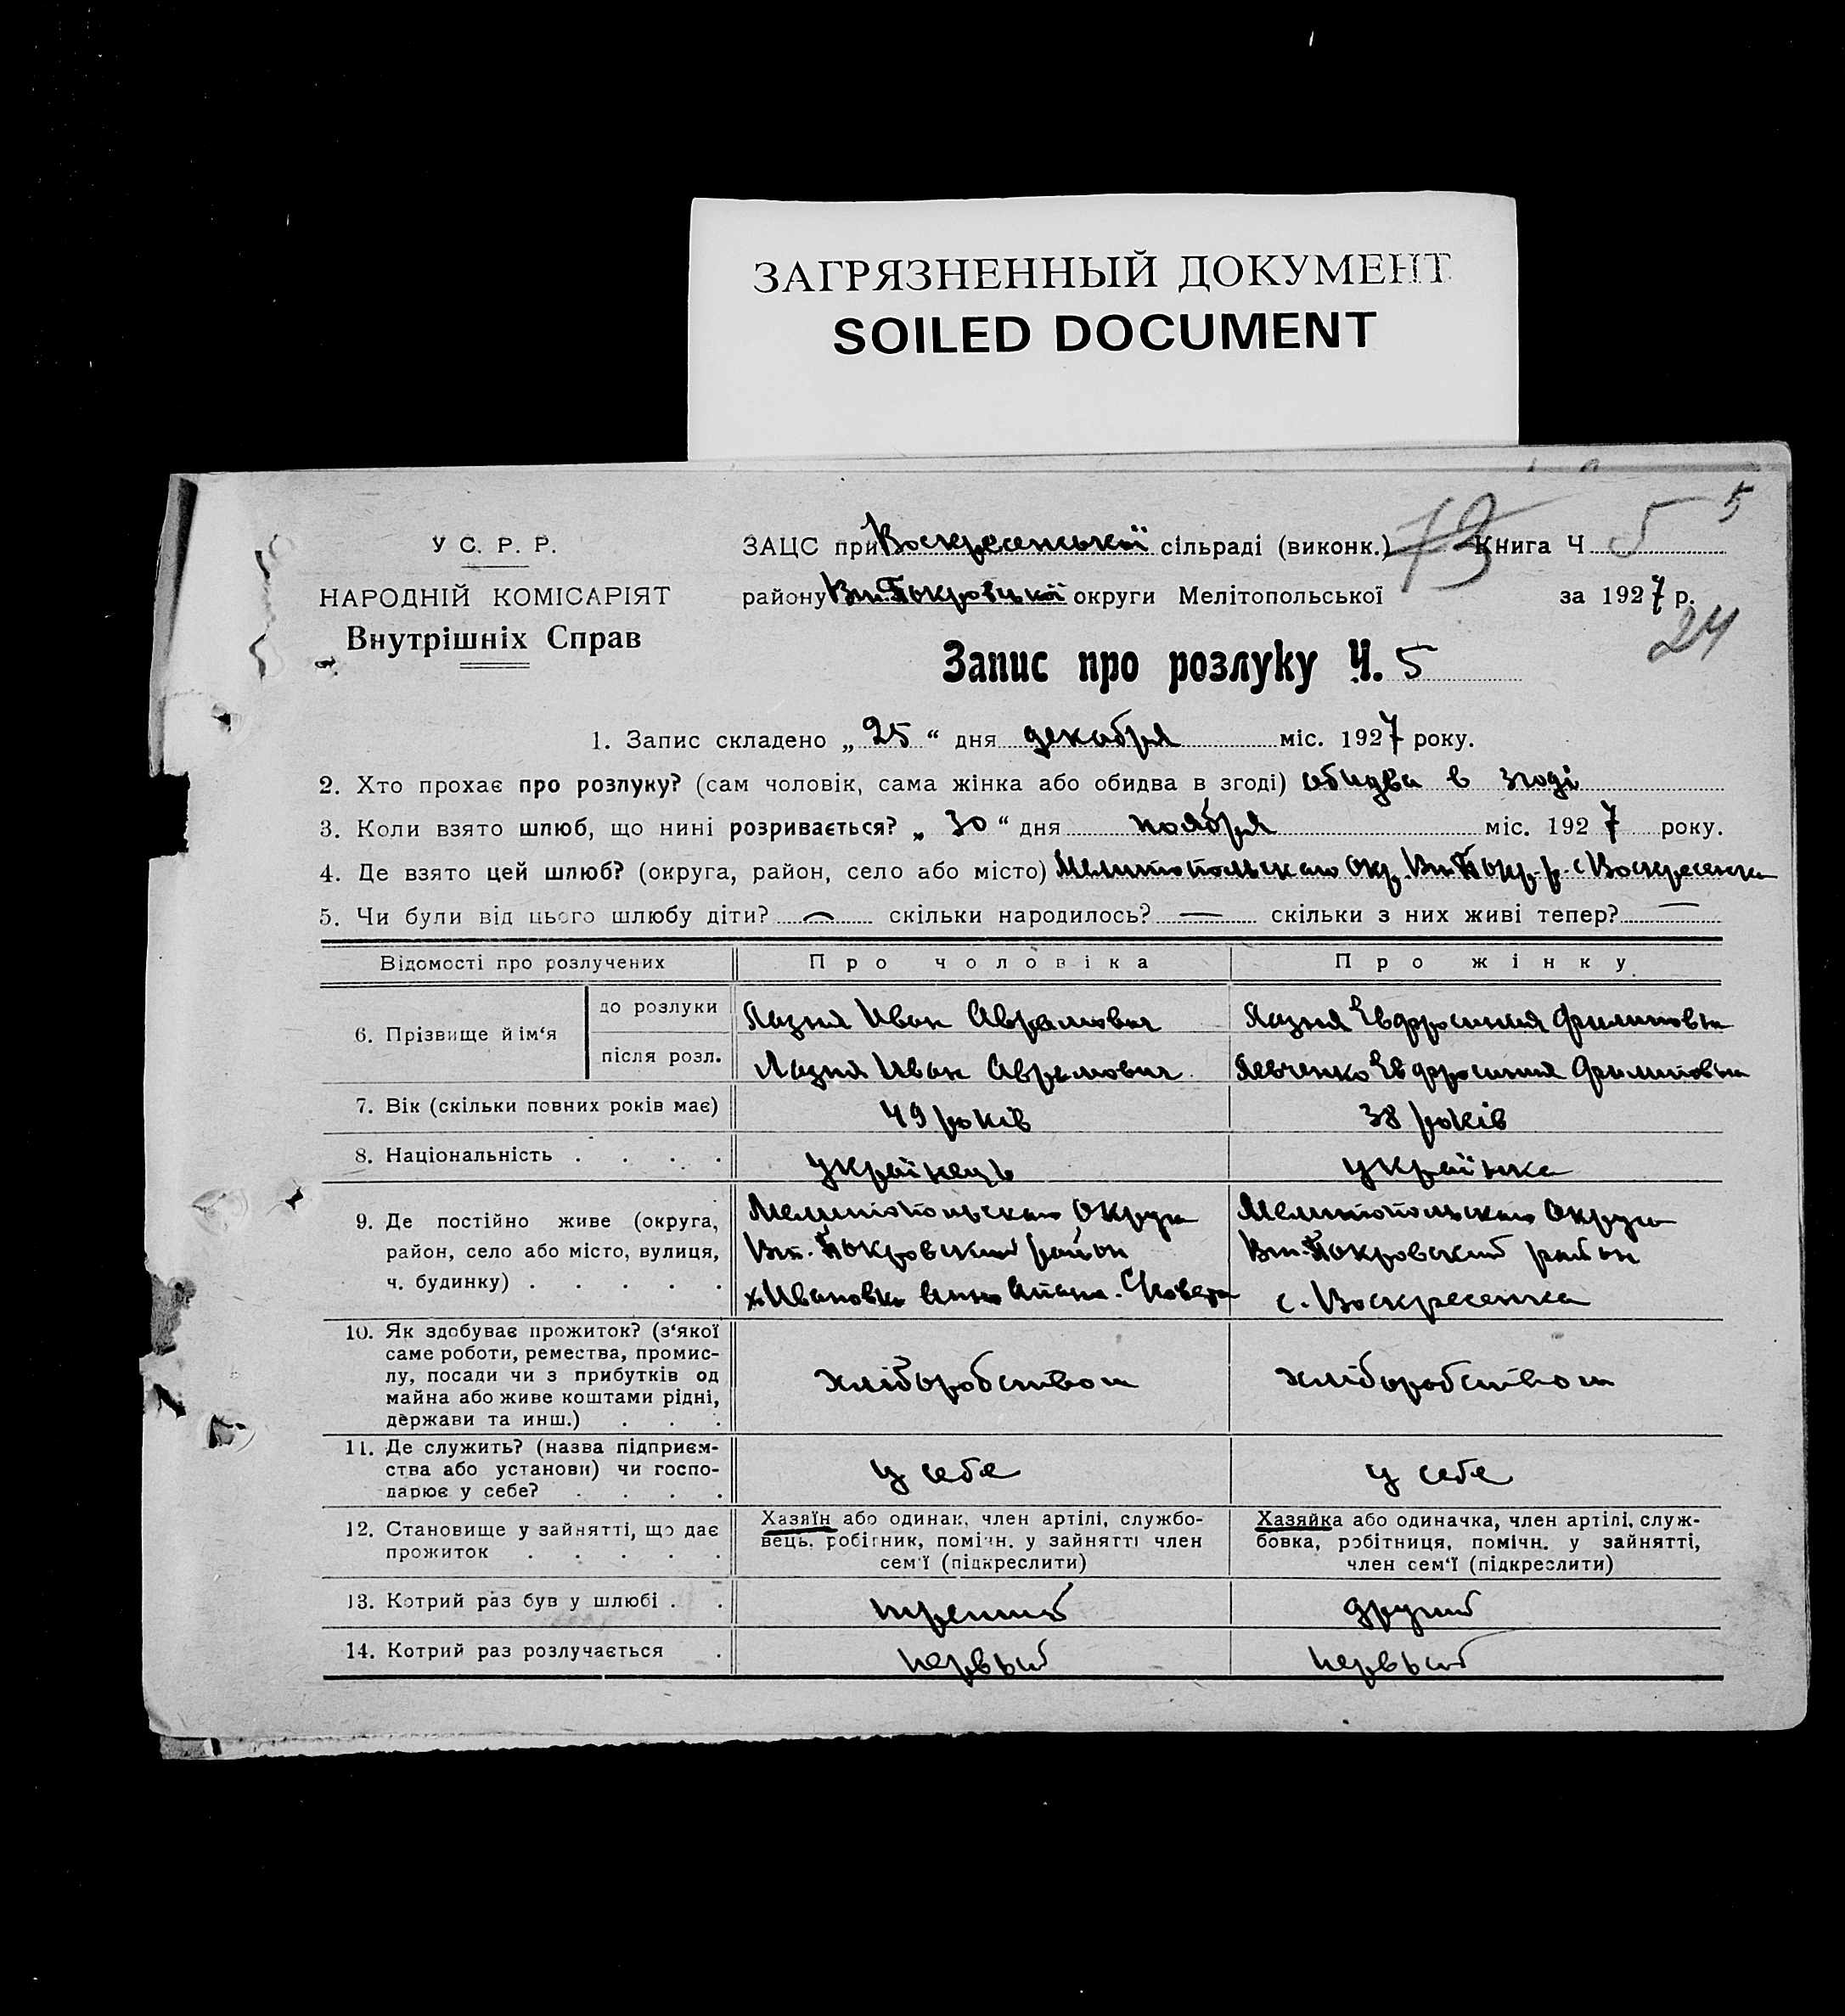 ЗАГРЯЗНЕННЫЙ ДОКУМЕНТ
SOILED DOCUMENT
5
У С. Р. Р.
НАРОДНІЙ КОМІСАРІЯТ
Внутрішніх Справ
ЗАЦС при Воскресенській сільраді (виконк.) 73 Книга Ч 5
району Вт. Покровській округи Мелітопольської за 1927 р.
24
Запис про розлуку Ч. 5
1. Запис складено „ 25 “ дня декабря міс. 1927 року.
2. Хто прохає про розлуку? (сам чоловік, сама жінка або обидва в згоді) обидва в згоді
3. Коли взято шлюб, що нині розривається? „ 30 “ дня ноября міс. 1927 року.
4. Де взято цей шлюб? (округа, район, село або місто) Мелитопольскаю Окр. Вт. Покр. р. с Воскресенка
5. Чи були від цього шлюбу діти? — скільки народилось? — скільки з них живі тепер? —
Відомості про розлучених Про чоловіка Про жінку
6. Прізвище й ім‘я
до розлуки Лазня Иван Аврамович Лазня Евфросиния Филиповна
після розл. Лазня Иван Аврамович Левченко Евфросиния Филиповна
7. Вік (скільки повних років має) 49 років 38 років
8. Національність . . . . українець українка
9. Де постійно живе (округа,
район, село або місто, вулиця,
ч. будинку) . . . . .
Мелитопольскаю Округи
Вт. Покровский район
х. Ивановка
Мелитопольскаю Округи
Вт. Покровский район
с. Воскресенка
10. Як здобуває прожиток? (з‘якої
саме роботи, ремества, промис-
лу, посади чи з прибутків од
майна або живе коштами рідні,
держави та инш.) . . .
хліборобством хліборобством
11. Де служить? (назва підприєм-
ства або установи) чи госпо-
дарює у себе? . . . .
у себе у себе
12. Становище у зайнятті, що дає
прожиток . . . . .
Хазяїн або одинак, член артілі, службо-
вець, робітник, помічн. у зайнятті член
сем‘ї (підкреслити)
Хазяйка або одиначка, член артілі, служ-
бовка, робітниця, помічн. у зайнятті,
член сем‘ї (підкреслити)
13. Котрий раз був у шлюбі . . третий другий
14. Котрий раз розлучається . первый первый